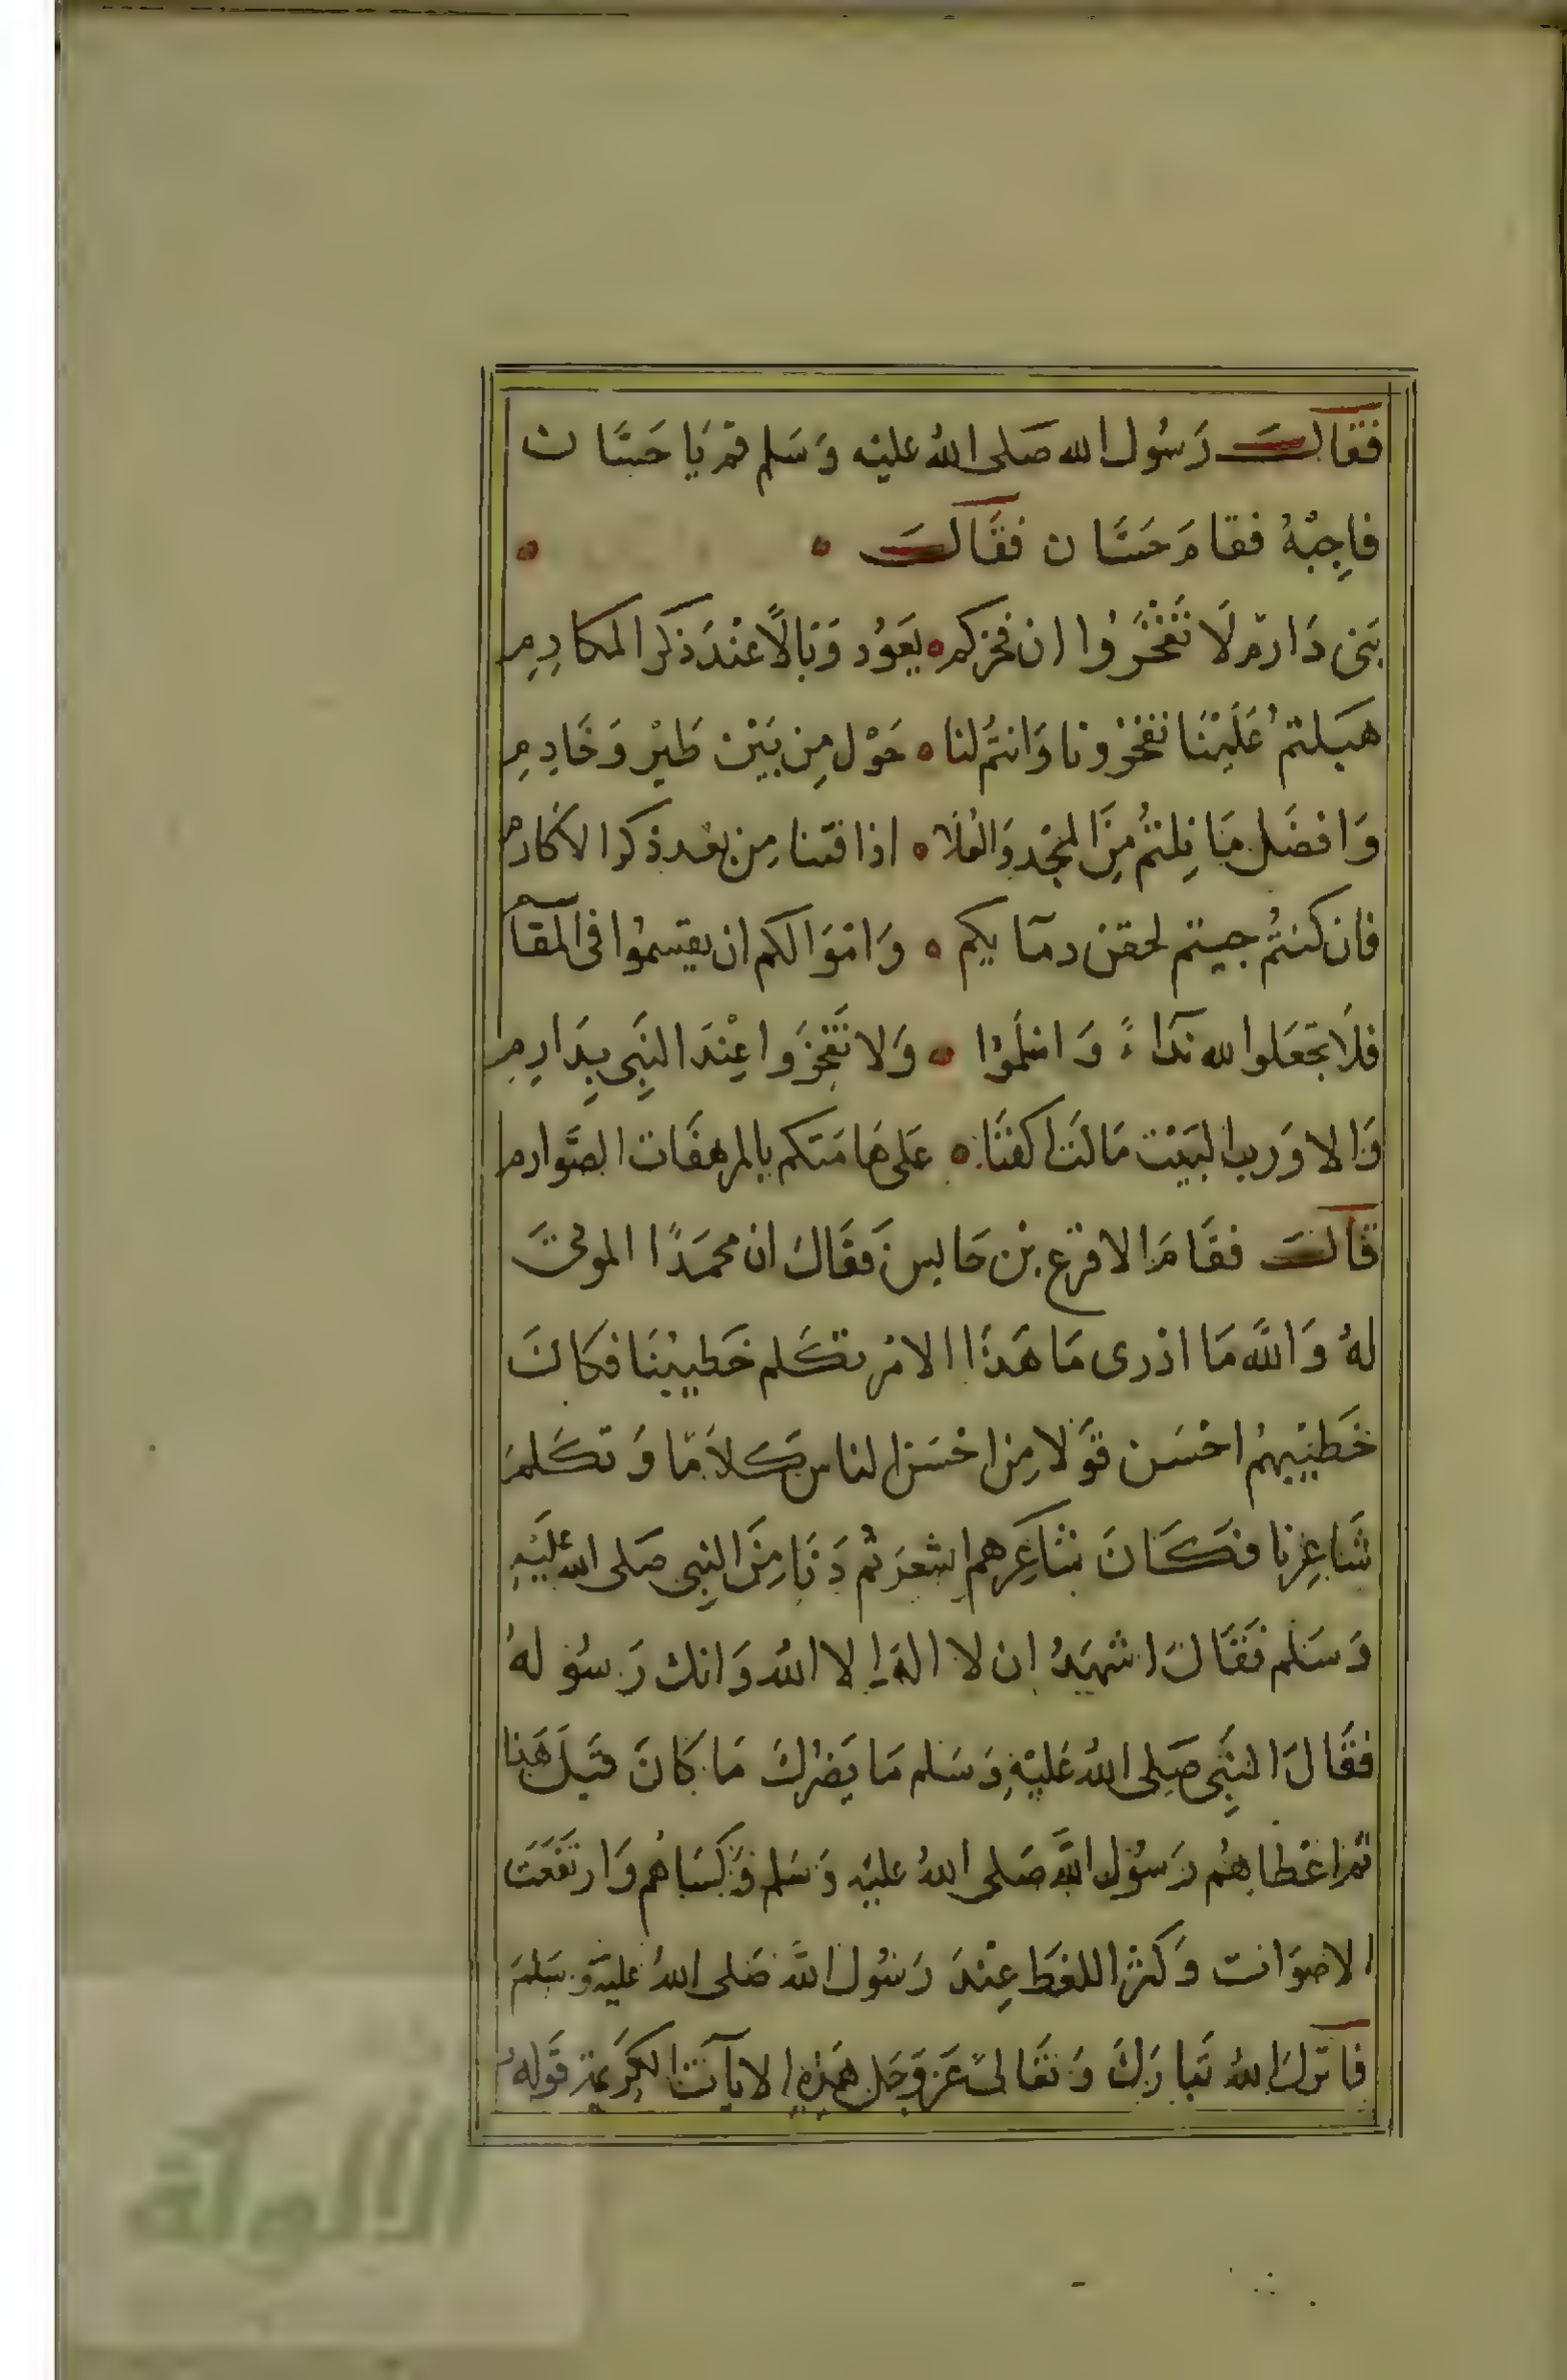 فقال رَسُول الله صَلى اللهُ عليْه وَسَلم قم يَا حَسَّان
فاجِبْهُ فقامَ حَسَّان فقَال
بَنى دَارم لَا تَفْخَرُوا ان فخركم يَعوُد وَبَالًا عنْدَ ذكر المكارِمِ
هبَلتمْ عَلَيْنَا تفخرونا وَانتُم لنا خَوْل مِن بَيْن ظيْر وَخَادِمِ
وَافضَل مَا نِلتُم مِنَ المجْد وَالعُلَا اذا قتنا مِن بعْد ذكر الاكارم
فان كنتُم جيتم لحقن دمآيكم وَامْوَالكم ان يقسمُوا فى المقآ
فلَا تجعَلوا لله ندّاءً وَاسْلمُوا وَلا تَفْخَرَوا عِنْدَ النَبِى بِدَارِمِ
وَالا وَرب البَيْت مَالت اكفنَا عَلى هَامَتكم بالمرهفَات الصَّوارم
قال فقَامَ الاقرَع بْن حَابس فَقَال ان محمَدًا الموتى
لهُ وَاللَّه مَا ادْرى مَا هَذَا الامْر تكَلم خَطيبْنَا فكَانَ
خَطيْبهمْ احْسَن قوَلا مِن احْسَن الناس كَلَامًا وَتكَلمَ
شَاعِرنا فكَانَ شَاعِرهم اشعَر ثم دَنَا مِنَ النبِى صَلى الله عَلَيْهِ
وَسَلم فَقَالَ اشهَدُ ان لا الهَ اِلا اللهُ وَانك رَسُولهُ
فقَالَ النبِى صَلى اللهُ عَليْهِ وَسَلم مَا يَضرُّكَ مَا كَانَ قبَل هَذا
ثم اعْطاهُم رَسُول اللَّه صَلى اللهُ عليَه وَسَلم وَكسَاهُم وَارتفَعَت
الاصوَات وَكثر اللغَط عِنْدَ رَسُول اللَّه صَلى اللهُ عليَه وَسَلمَ
فانزل اللهُ تَبارَكَ وَتعَالىَ عَز وَجَل هَذِه الايآت الكَرِيمَة قَوله
الألوكة